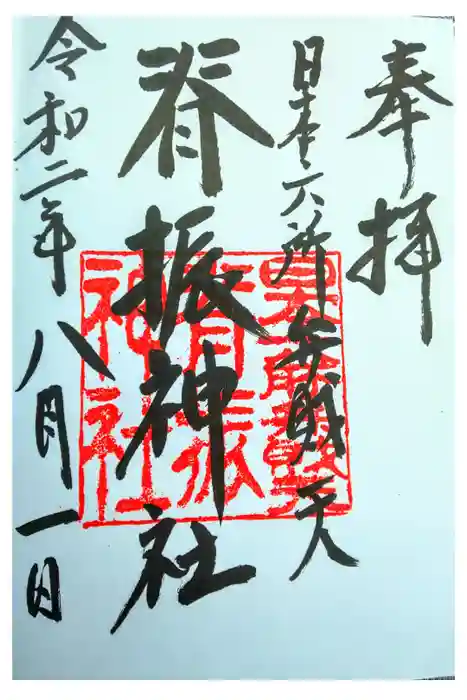 奉拝
日本六所弁財天
脊振神社
令和二年八月一日
脊振
神社